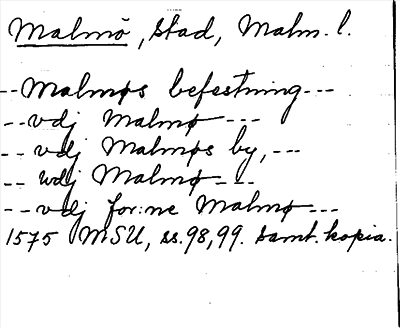 Malmö, stad, Malm. l.
--Malmøs befestning---
--vdj Malmø---
-- vdj Malmøs by,---
-- wdj Malmø---
--vdj for:ne Malmø---
1575 MSU, ss. 98, 99. Samt. kopia.